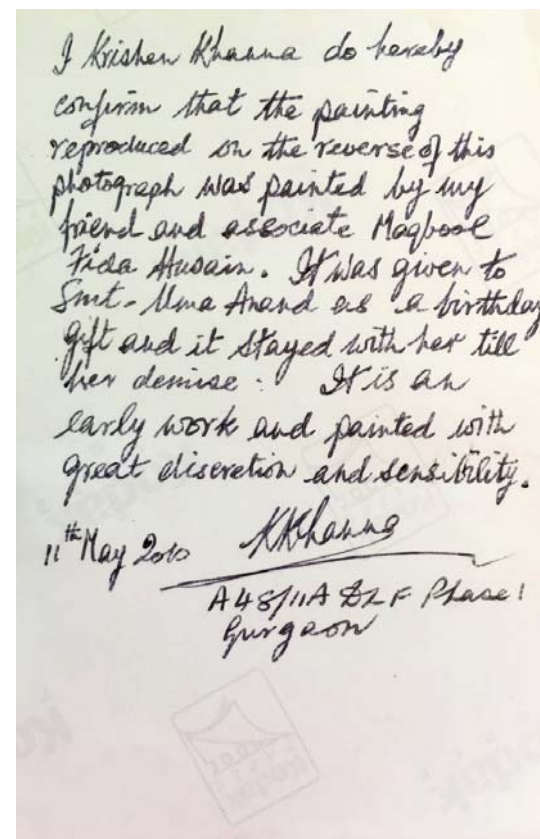 I Krishen Khanna do hereby
confirm that the painting
reproduced on the reverse of this
photograph was painted by my
friend and associate Maqbool
Fida Husain. It was given to
Smt. Uma Anand as a birthday
gift and it stayed with her till
her demise. It is an
early work and painted with
great discretion and sensibility.
11th May 2010 KKhanna
A48/11A DLF Phase 1
Gurgaon
Kodak